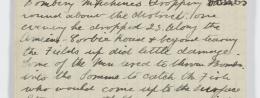 Bombing Machines dropping bombs
round above the district. One
evening he dropped 23 along the
Amiens Corbie road & beyond leaving
the Fields up did little damage.
Some of the Men used to throw Bombs
into the Somme to catch the Fish
who would come up to the surface